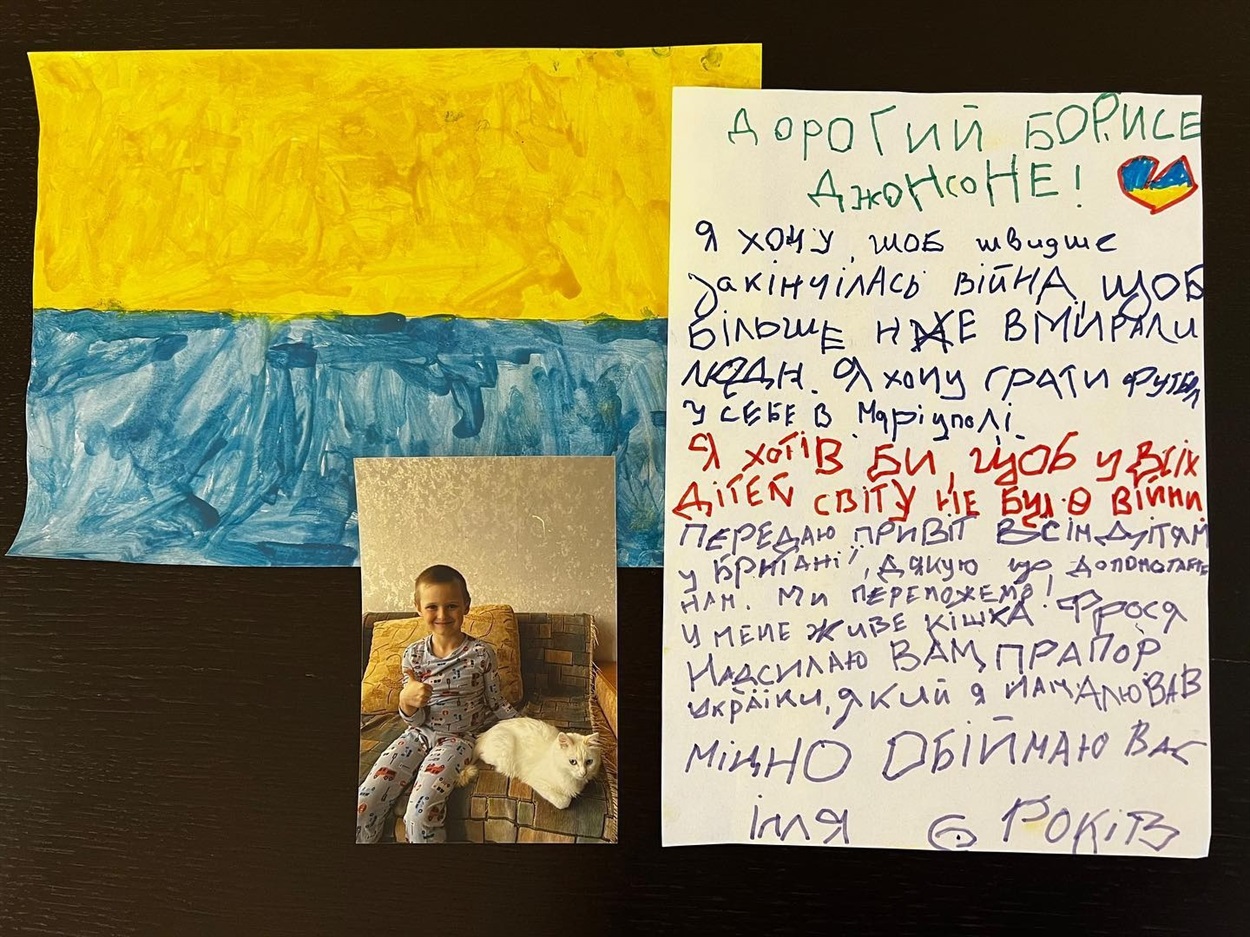 ДОРОГИЙ БОРИСЕ
ДжОНсОНЕ!
Я ХОЧУ, щоб швидше
закінчілАсь ВІЙНА, щОБ
БІЛЬШЕ НЕ ВМИРАЛИ
люди. Я хочу ГРАТИ футбол
У СЕБЕ В Маріуполі.
Я хотІВ БИ, щОБ у ВСІХ
ДІТЕЙ СВІТУ НЕ БУЛО ВІЙНИ
ПЕРЕДАЮ ПРИВІТ ВСІМ ДІТЯМ
у БРИТАНІЇ, ДЯКУЮ що ДОПОМОГАЕТЕ
НАМ. МИ ПЕРЕМОЖЕМО!
У МЕНЕ ЖИВЕ КІШКА ФРОСЯ
НАДСИЛАЮ ВАМ ПРАПОР
УКРАЇНИ, Який я НАМАЛЮВАВ
МІЦНО ОБІЙМАЮ ВАС
ІЛЛЯ 6 РОКІВ